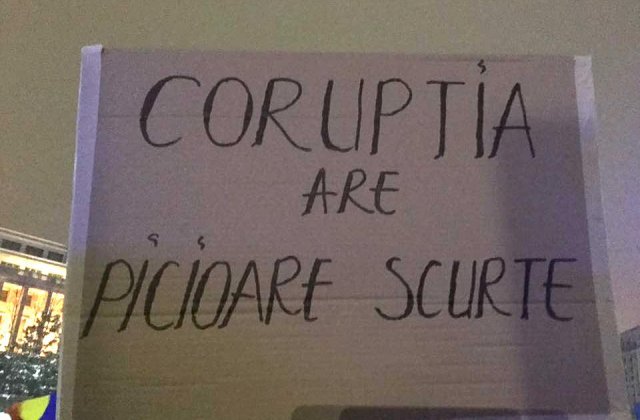 CORUPTIA
ARE
PICIOARE SCURTE